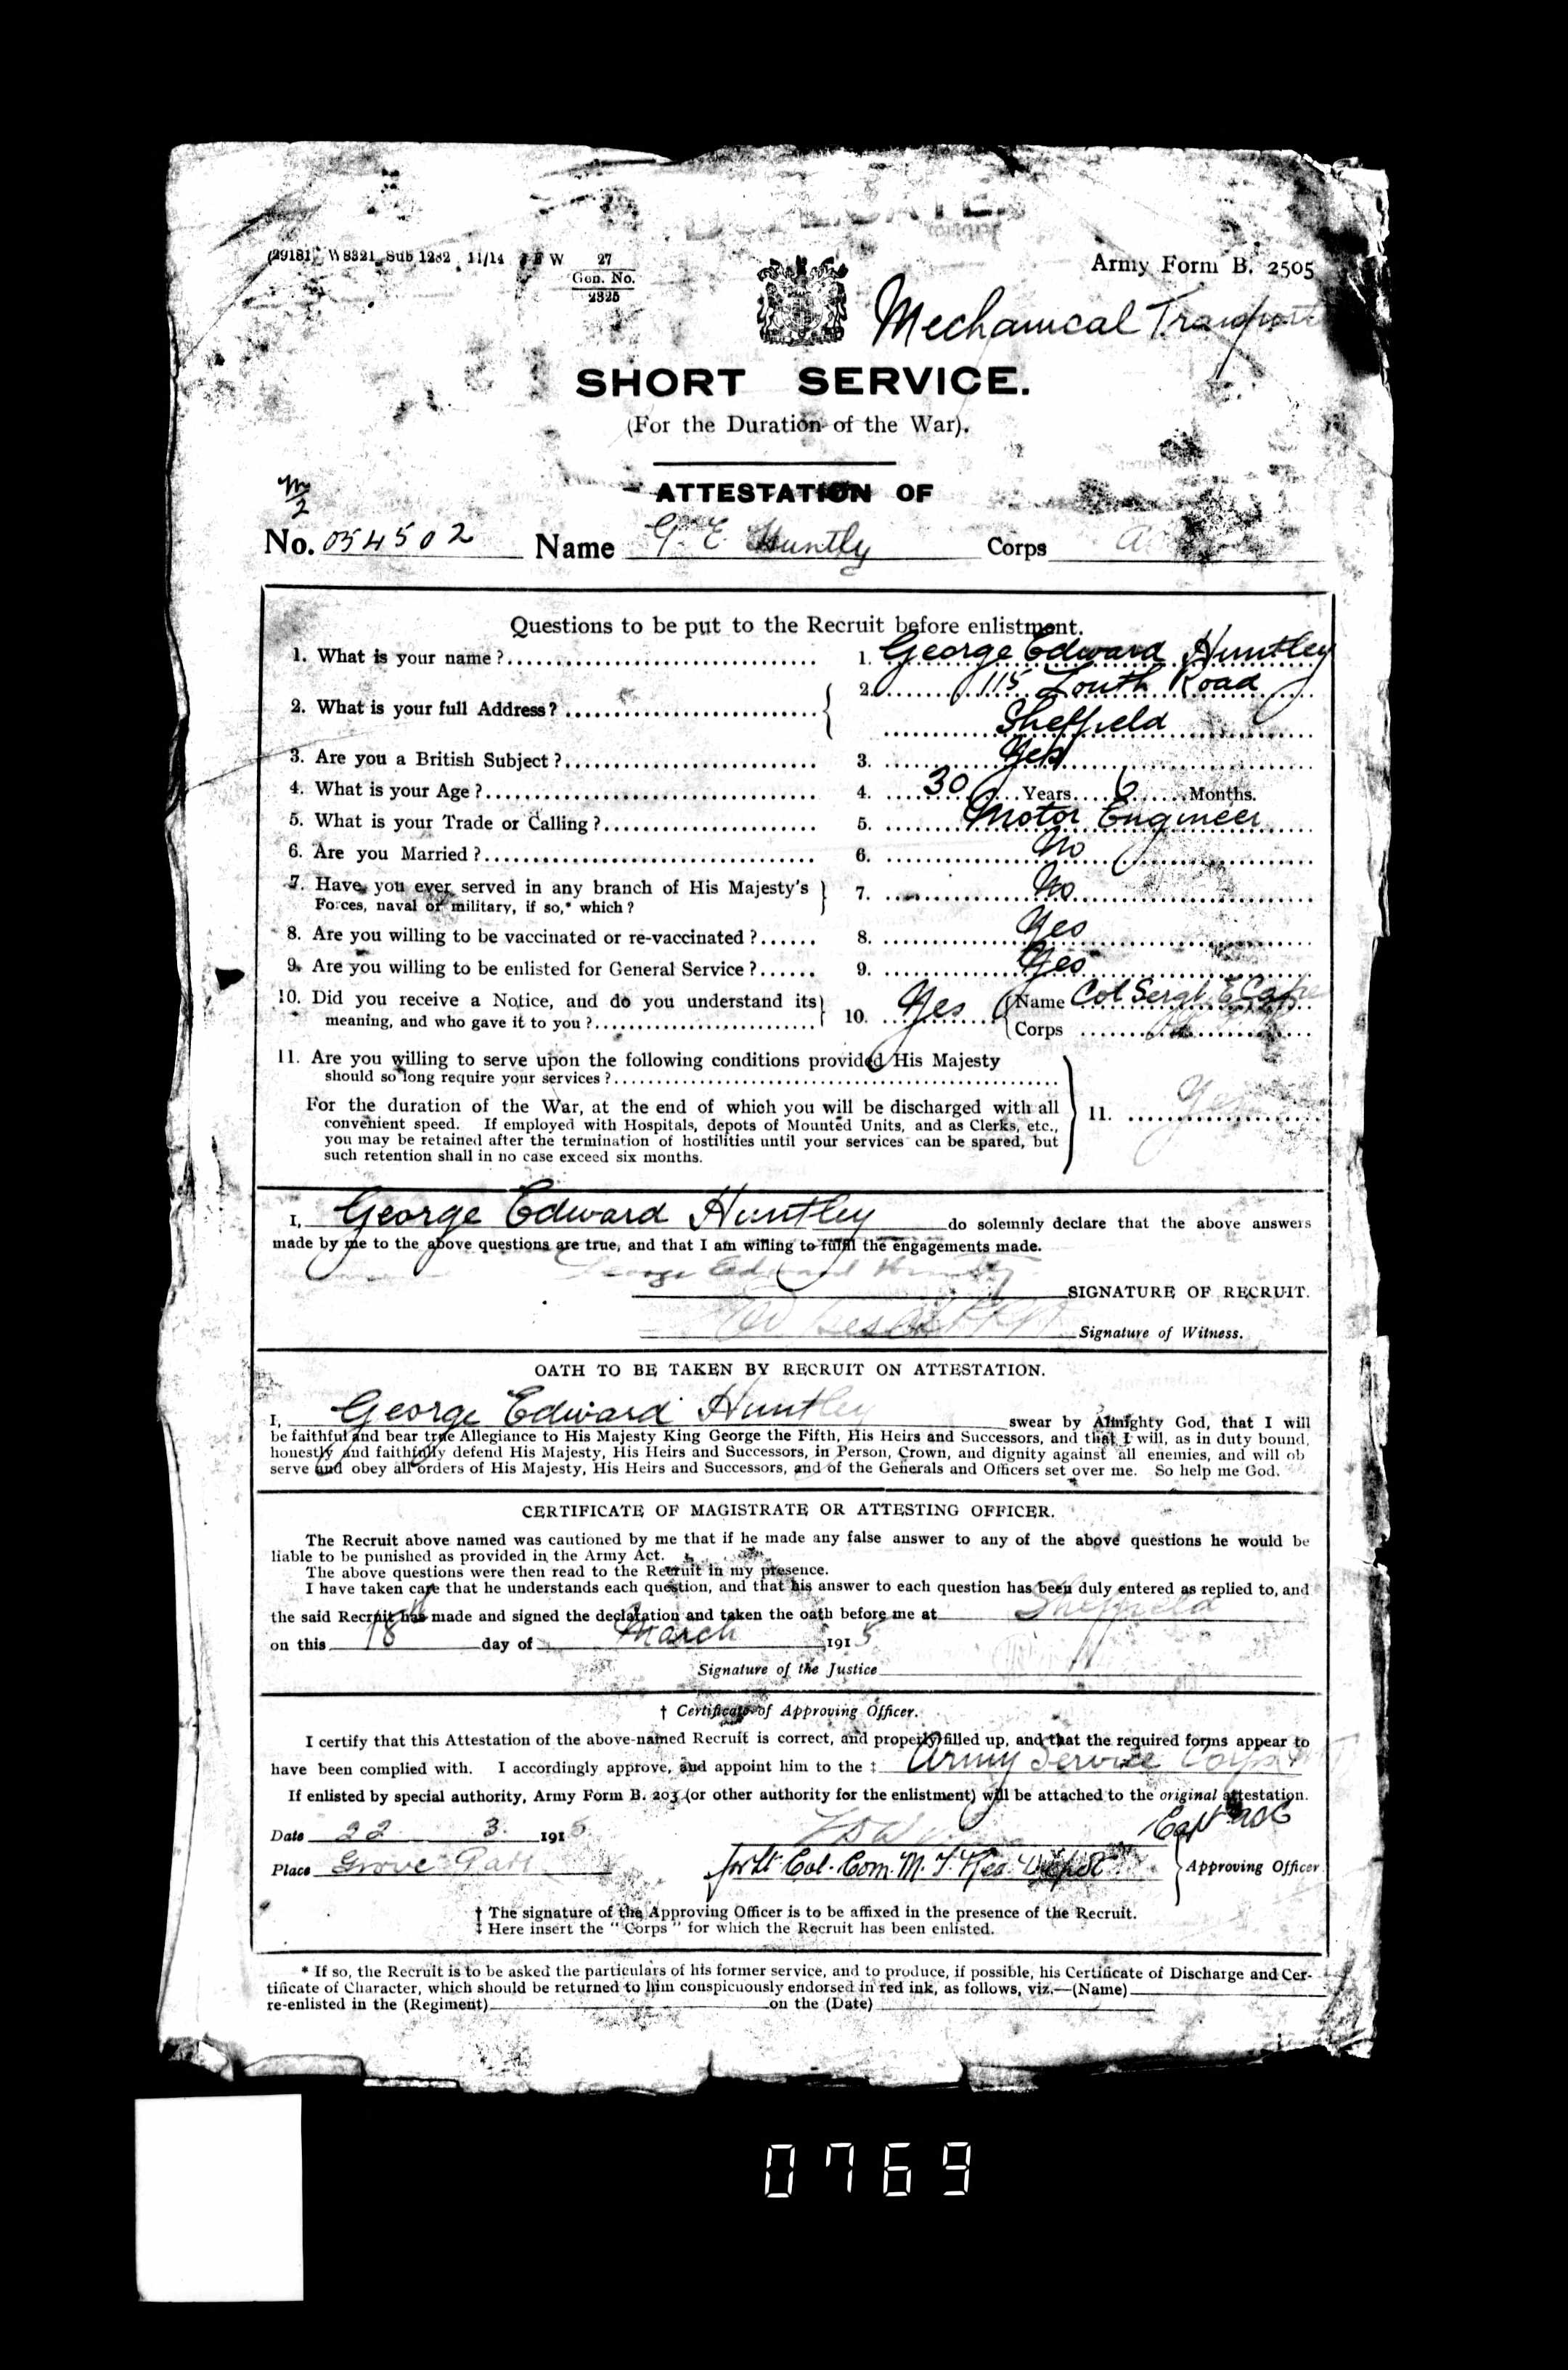 (29181) W 8321 Sub 1282 11/14 W 27
Gen. No.
2325
Army Form B. 2505
Mechanical Transport
SHORT SERVICE.
(For the Duration of the War).
ATTESTATION OF
M/2
No. 054502 Name G. E. Huntly Corps
Questions to be put to the Recruit before enlistment.
1. What is your name? 1. George Edward Huntley
2. What is your full Address? 2. 115 South Road
Sheffield
3. Are you a British Subject? 3. Yes
4. What is your Age? 4. 30 Years 6 Months.
5. What is your Trade or Calling? 5. Motor Engineer
6. Are you Married? 6. No
7. Have you ever served in any branch of His Majesty's 7. No
Forces, naval or military, if so,* which?
8. Are you willing to be vaccinated or re-vaccinated? 8. Yes
9. Are you willing to be enlisted for General Service? 9. Yes
10. Did you receive a Notice, and do you understand its 10. Yes Name Col Sergt E
meaning, and who gave it to you? Corps
11. Are you willing to serve upon the following conditions provided His Majesty
should so long require your services?
For the duration of the War, at the end of which you will be discharged with all 11. Yes
convenient speed. If employed with Hospitals, depots of Mounted Units, and as Clerks, etc.,
you may be retained after the termination of hostilities until your services can be spared, but
such retention shall in no case exceed six months.
I, George Edward Huntley do solemnly declare that the above answers
made by me to the above questions are true, and that I am willing to fulfil the engagements made.
George Edward Huntley
SIGNATURE OF RECRUIT.
Signature of Witness.
OATH TO BE TAKEN BY RECRUIT ON ATTESTATION.
I, George Edward Huntley swear by Almighty God, that I will
be faithful and bear true Allegiance to His Majesty King George the Fifth, His Heirs and Successors, and that I will, as in duty bound,
honestly and faithfully defend His Majesty, His Heirs and Successors, in Person, Crown, and dignity against all enemies, and will ob
serve and obey all orders of His Majesty, His Heirs and Successors, and of the Generals and Officers set over me. So help me God.
CERTIFICATE OF MAGISTRATE OR ATTESTING OFFICER.
The Recruit above named was cautioned by me that if he made any false answer to any of the above questions he would be
liable to be punished as provided in the Army Act.
The above questions were then read to the Recruit in my presence.
I have taken care that he understands each question, and that his answer to each question has been duly entered as replied to, and
the said Recruit has made and signed the declaration and taken the oath before me at Sheffield
on this 18 day of March 1915
Signature of the Justice
† Certificate of Approving Officer.
I certify that this Attestation of the above-named Recruit is correct, and properly filled up, and that the required forms appear to
have been complied with. I accordingly approve, and appoint him to the ‡ Army Service Corps MT
If enlisted by special authority, Army Form B. 203 (or other authority for the enlistment) will be attached to the original attestation.
Date 22 3. 1915 Capt ASC
Place Grove Park for Lt Col. Com. M. T. Res. Depot Approving Officer
† The signature of the Approving Officer is to be affixed in the presence of the Recruit.
‡ Here insert the "Corps" for which the Recruit has been enlisted.
* If so, the Recruit is to be asked the particulars of his former service, and to produce, if possible, his Certificate of Discharge and Cer-
tificate of Character, which should be returned to him conspicuously endorsed in red ink, as follows, viz.—(Name)
re-enlisted in the (Regiment) on the (Date)
0769